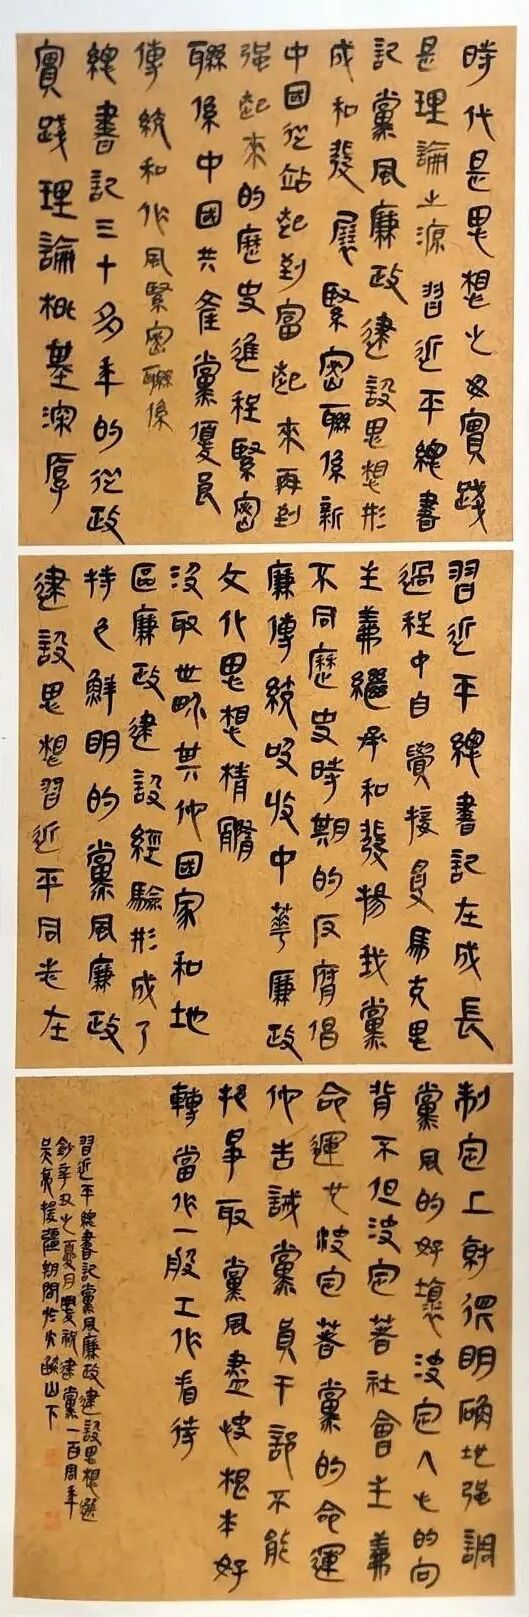 時代是思想之母實踐
是理論之源習近平總書
記黨風廉政建設思想形
成和發展緊密聯係新
中國從站起到富起來再到
强起來的歷史進程緊密
聯係中國共產黨優良
傳統和作風緊密聯係
總書記三十多年的從政
實踐理論根基深厚
習近平總書記在成長
過程中自覺接受馬克思
主義繼承和發揚我黨
不同歷史時期的反腐倡
廉傳統吸收中華廉政
文化思想精髓
汲取世界其他國家和地
區廉政建設經驗形成了
特色鮮明的黨風廉政
建設思想習近平同志在
制定上就很明確地强調
黨風的好壞決定人心的向
背不但決定著社會主義
命運也決定著黨的命運
他告誡黨員干部不能
把爭取黨風盡快根本好
轉當作一般工作看待
習近平總書記黨風廉政建設思想選
鈔辛丑之夏月慶祝建黨一百周年
吳為援疆朝闻於火焰山下